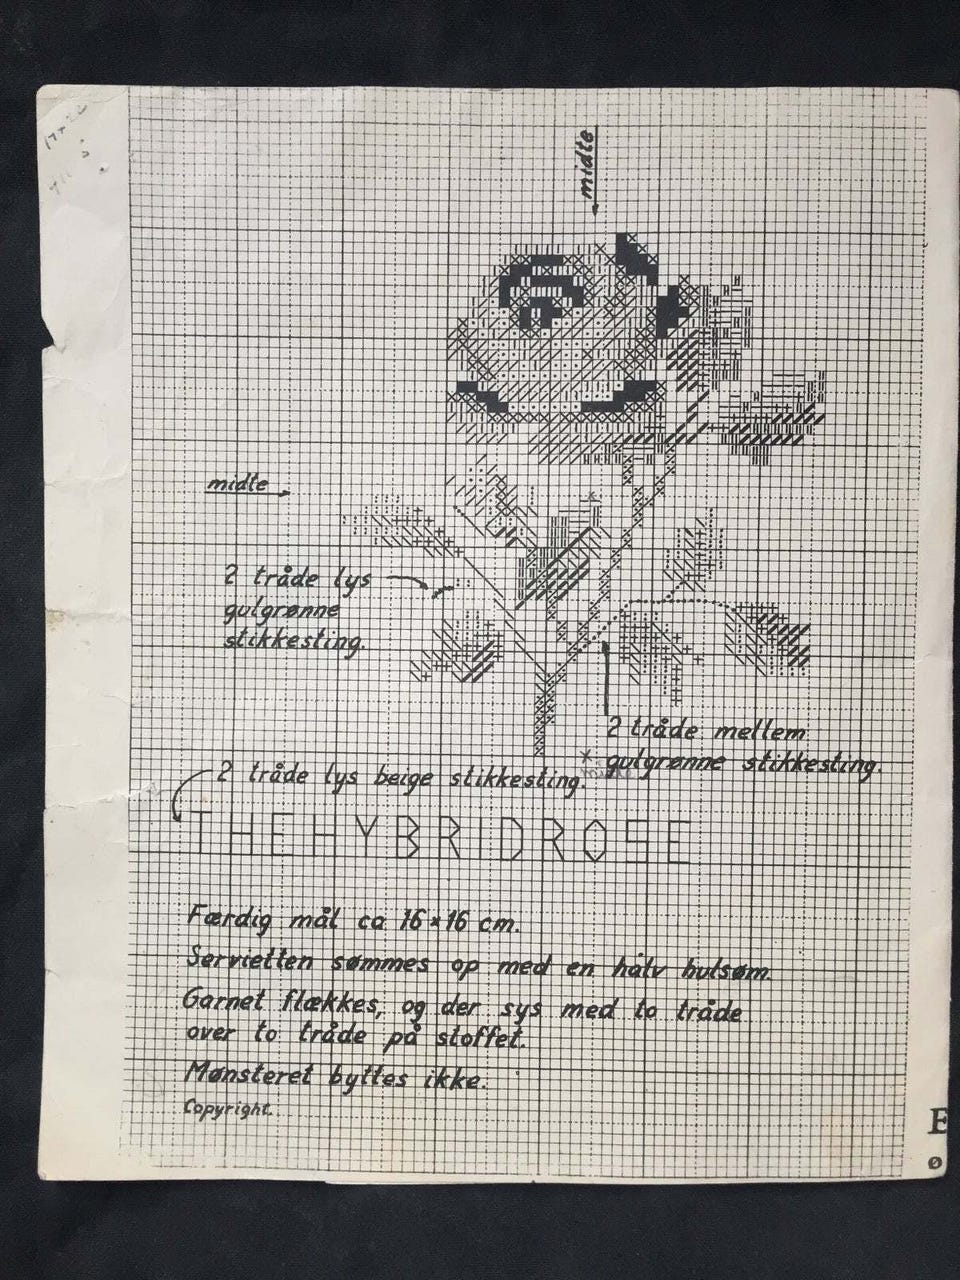 midte
midte
2 tråde lys
gulgrønne
stikkesting.
2 tråde mellem
gulgrønne stikkesting.
2 tråde lys beige stikkesting.
THEHYBRIDROSE
Færdig mål ca 16 × 16 cm.
Servietten sømmes op med en halv hulsøm.
Garnet flækkes, og der sys med to tråde
over to tråde på stoffet.
Mønsteret byttes ikke.
Copyright.
E